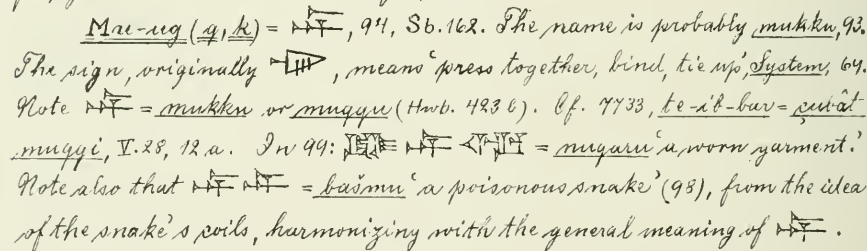 Mu-ug (g, k) = , 94, Sb. 162. The name is probably mukku, 93.
The sign, originally , means 'press together, bind, tie up', System, 64.
Note = mukku or muqqu (Hwb. 423 b). Cf. 7733, te-ib-bar = çubât
muqqi, V. 28, 12 a. In 99: = nugaru 'a worn garment.'
Note also that = bašmu 'a poisonous snake' (98), from the idea
of the snake's coils, harmonizing with the general meaning of .